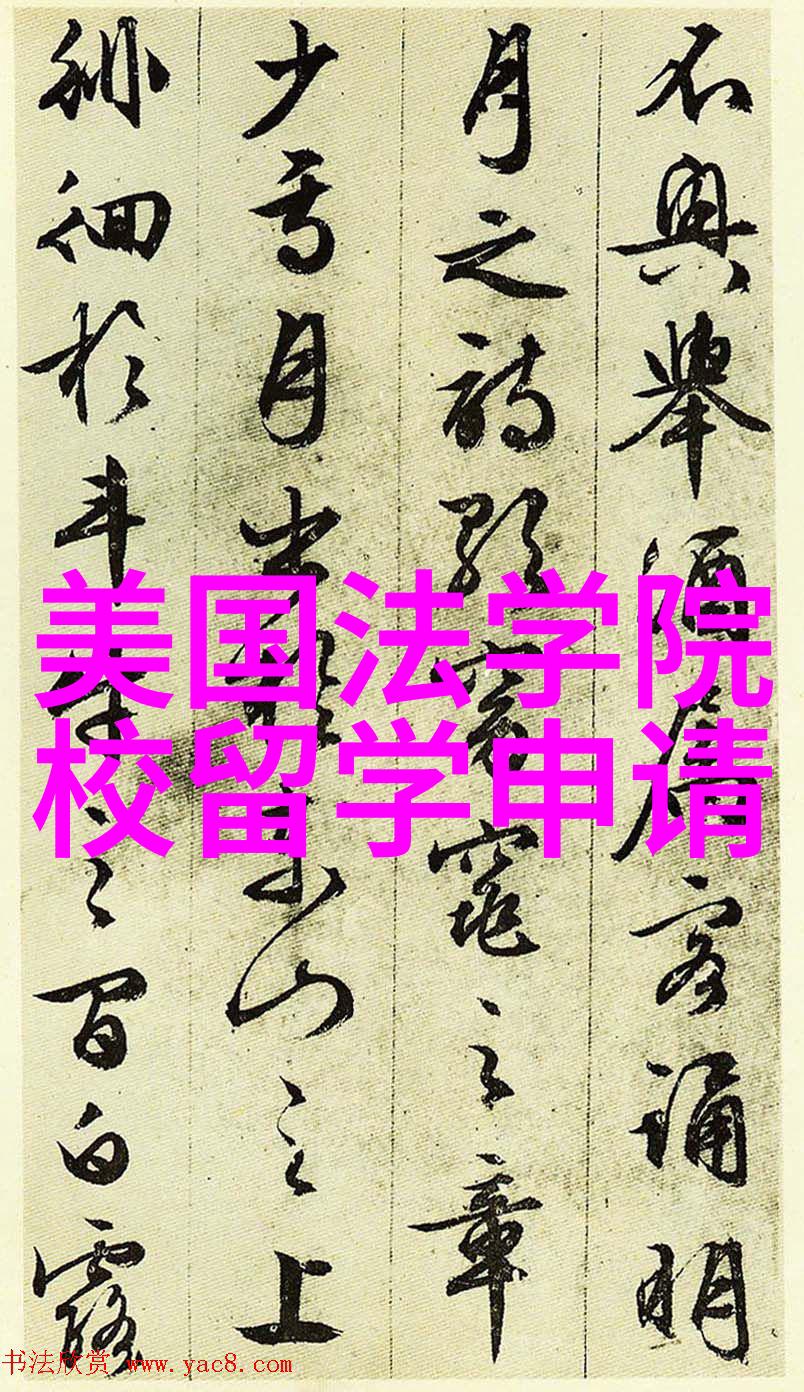 不興舉酒屬客誦明
月之詩歌窈窕之章
少焉月出於東山之上
徘徊於斗牛之間白露
美国法学院
校留学申请
书法欣赏 www.yac8.com